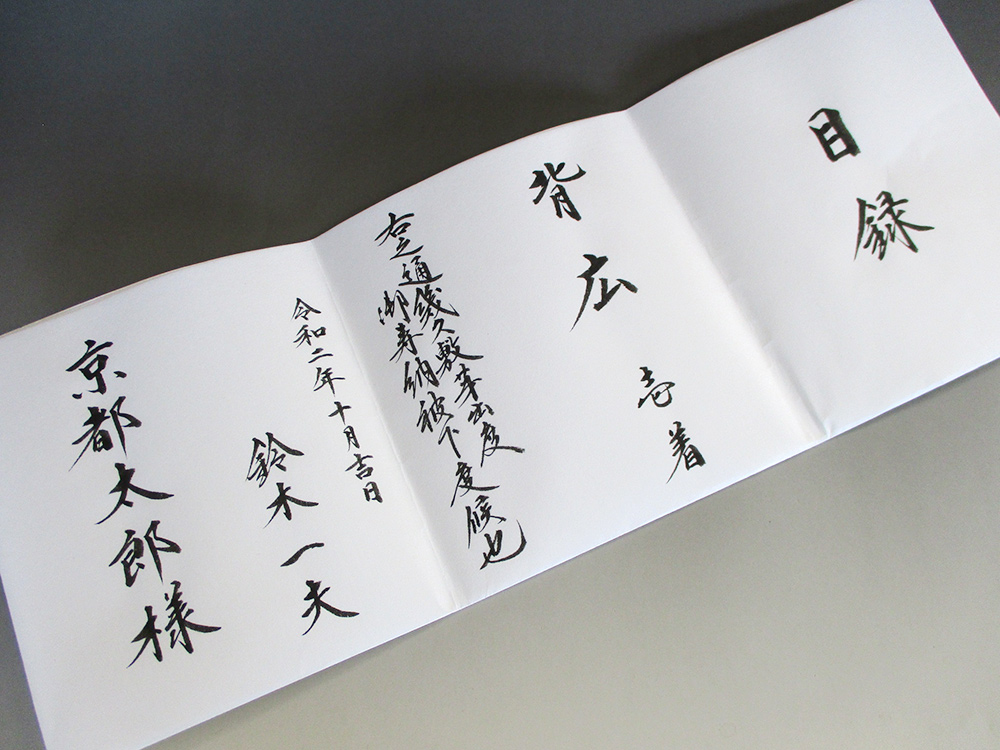 目録
背広 壱着
右之通幾久敷芽出度
御寿納被下度候也
令和二年十月吉日
鈴木一夫
京都太郎様